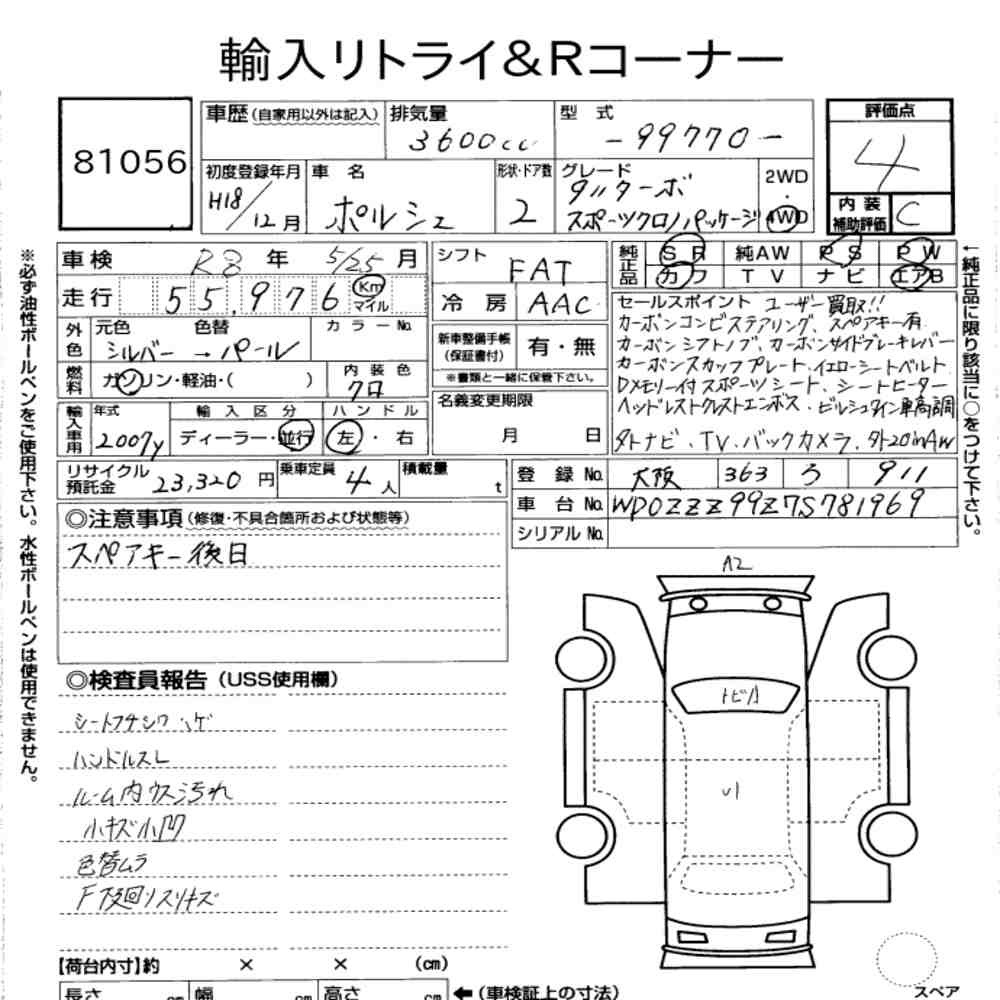 輸入リトライ&Rコーナー
81056
車歴(自家用以外は記入)
排気量
3600cc
型 式
-99770-
評価点
4
初度登録年月
H18/12月
車 名
ポルシェ
形状・ドア数
2
グレード
911ターボ
スポーツクロノパッケージ
2WD
・
4WD
内 装
補助評価
C
車検
R8 年 5/25 月
走行
55,976
Km
マイル
外色
元色
色替
シルバー → パール
カラーNo.
燃料
ガソリン・軽油・( )
内 装 色
クロ
輸入車用
年式
2007y
輸 入 区 分
ディーラー・並行
ハ ン ド ル
左・右
シフト
FAT
冷 房
AAC
新車整備手帳
(保証書付)
有・無
※書類と一緒に保管下さい。
名義変更期限
月 日
純正品
S R
純AW
P S
P W
カ ワ
T V
ナ ビ
エアB
セールスポイント ユーザー買取!!
カーボンコンビステアリング、スペアキー有
カーボンシフトノブ、カーボンサイドブレーキレバー
カーボンスカッフプレート、イエローシートベルト
Dメモリー付スポーツシート、シートヒーター
ヘッドレストクレストエンボス・ビルシュタイン車高調
外ナビ、TV、バックカメラ、外20inAW
リサイクル
預託金
23,320 円
乗車定員
4人
積載量
t
登 録 No.
大阪
363
ろ
911
車 台 No.
WP0ZZZ99Z7S781969
シリアルNo.
◎注意事項(修復・不具合箇所および状態等)
スペアキー後日
◎検査員報告(USS使用欄)
シートフチシワ ハゲ
ハンドルスレ
ルーム内ウス汚れ
小キズ小凹
色替ムラ
F下廻リスリキズ
A2
トビA
【荷台内寸】約 × × (cm)
長さ cm
幅 cm
高さ cm
←(車検証上の寸法)
スペア
※必ず油性ボールペンをご使用下さい。水性ボールペンは使用できません。
←純正品に限り該当に○をつけて下さい。